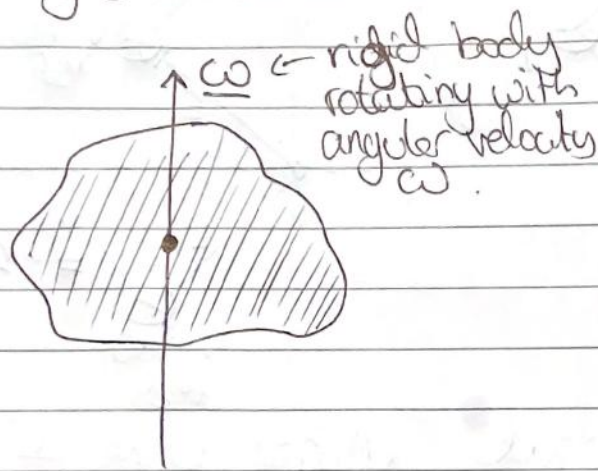 ω ← rigid body
rotating with
angular velocity
ω.